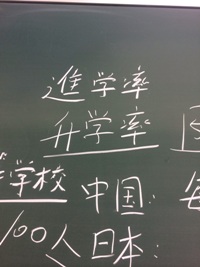 進学率
升学率
学校 中国: 每
100人 日本: